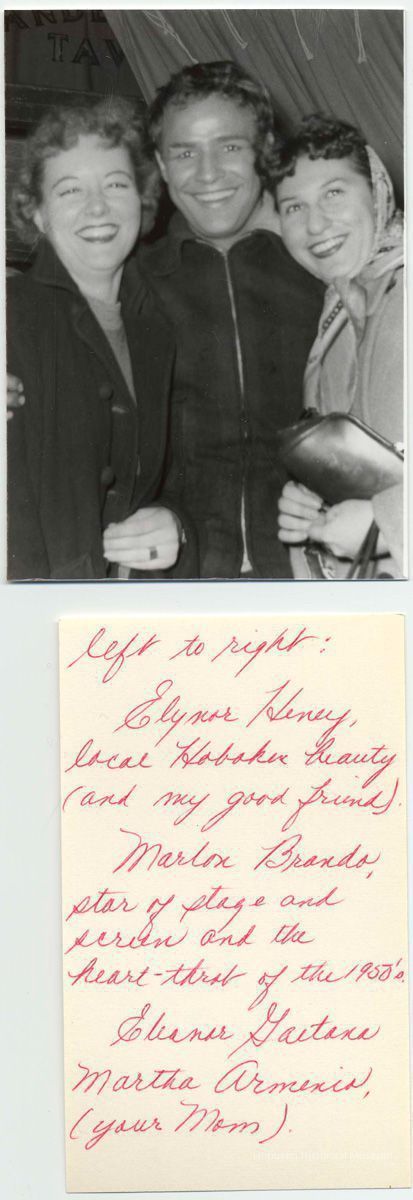 TAV
left to right:
Elynor Heney,
local Hoboken beauty
(and my good friend).
Marlon Brando,
star of stage and
screen and the
heart-throb of the 1950's.
Eleanor Gaetana
Martha Armenia,
(your Mom).
Hoboken Historical Museum